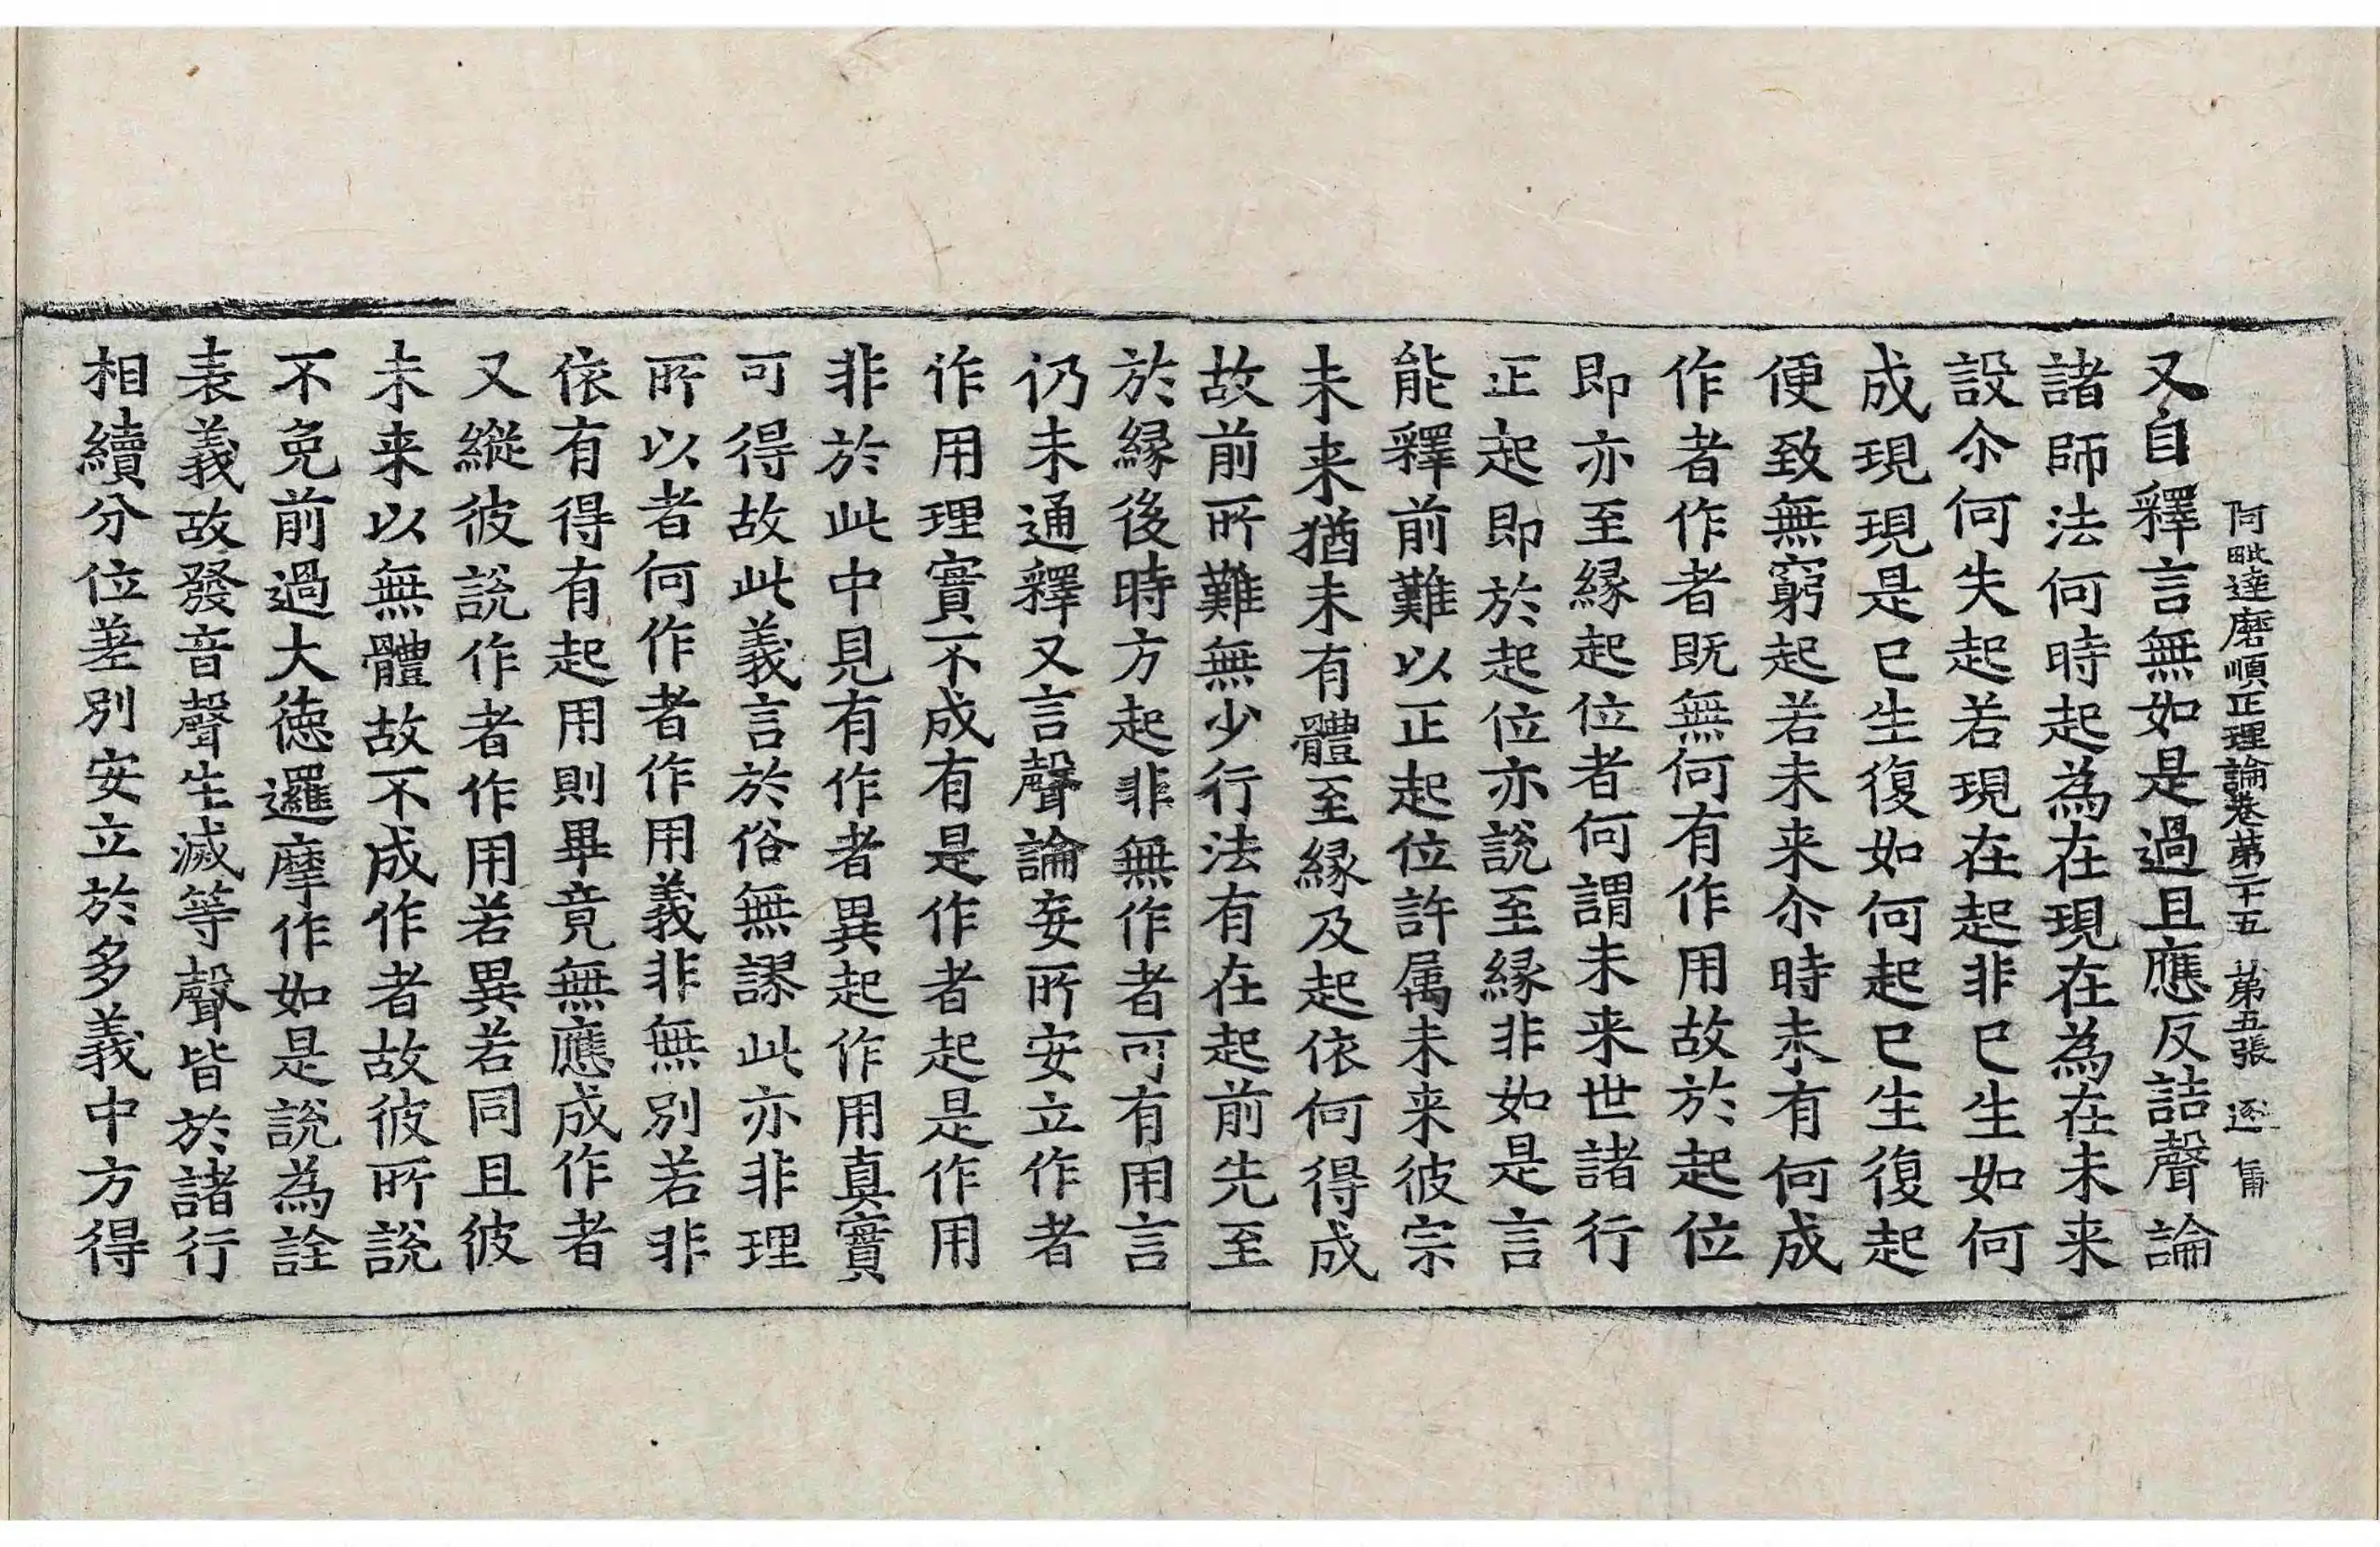 阿毗達磨順正理論卷第二十五 第五張 逐
又自釋言無如是過且應反詰聲論
諸師法何時起為在現在為在未来
設尒何失起若現在起非巳生如何
成現現是巳生復如何起巳生復起
便致無窮起若未来尒時未有何成
作者作者既無何有作用故於起位
即亦至縁起位者何謂未来世諸行
正起即於起位亦說至縁非如是言
能釋前難以正起位許属未来彼宗
未来猶未有體至縁及起依何得成
故前所難無少行法有在起前先至
於縁後時方起非無作者可有用言
仍未通釋又言聲論妄所安立作者
作用理實不成有是作者起是作用
非於此中見有作者異起作用真實
可得故此義言於俗無謬此亦非理
所以者何作者作用義非無別若非
依有得有起用則畢竟無應成作者
又縱彼說作者作用若異若同且彼
未来以無體故不成作者故彼所說
不免前過大德邏摩作如是說為詮
表義故發音聲生滅等聲皆於諸行
相續分位差別安立於多義中方得